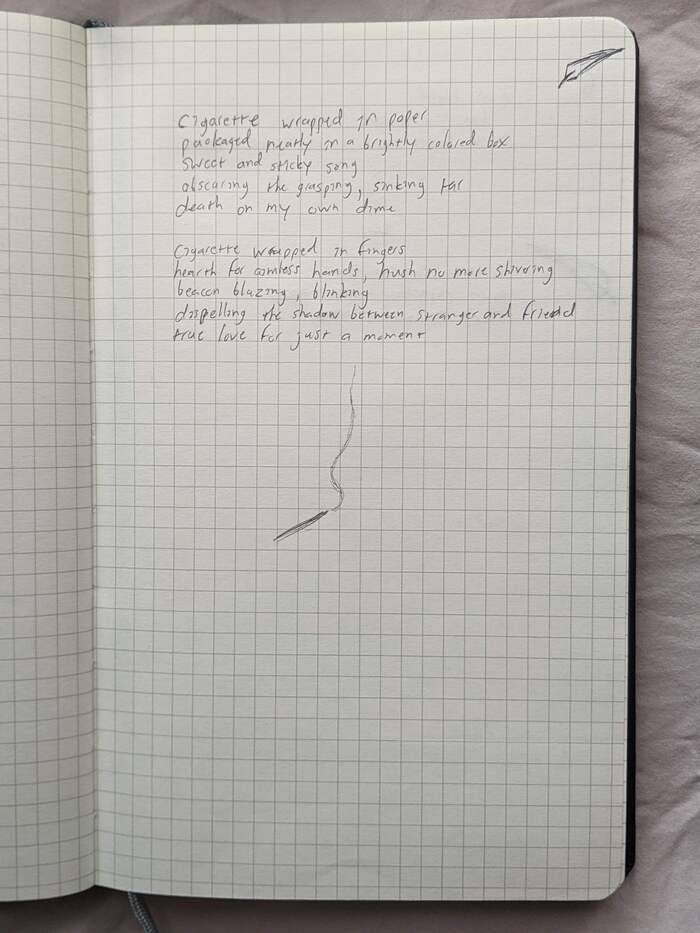 Cigarette wrapped in paper
packaged neatly in a brightly colored box
sweet and sticky song
obscuring the grasping, sinking tar
death on my own dime

Cigarette wrapped in fingers
hearth for aimless hands, hush no more shivering
beacon blazing, blinking
dispelling the shadow between stranger and friend
true love for just a moment